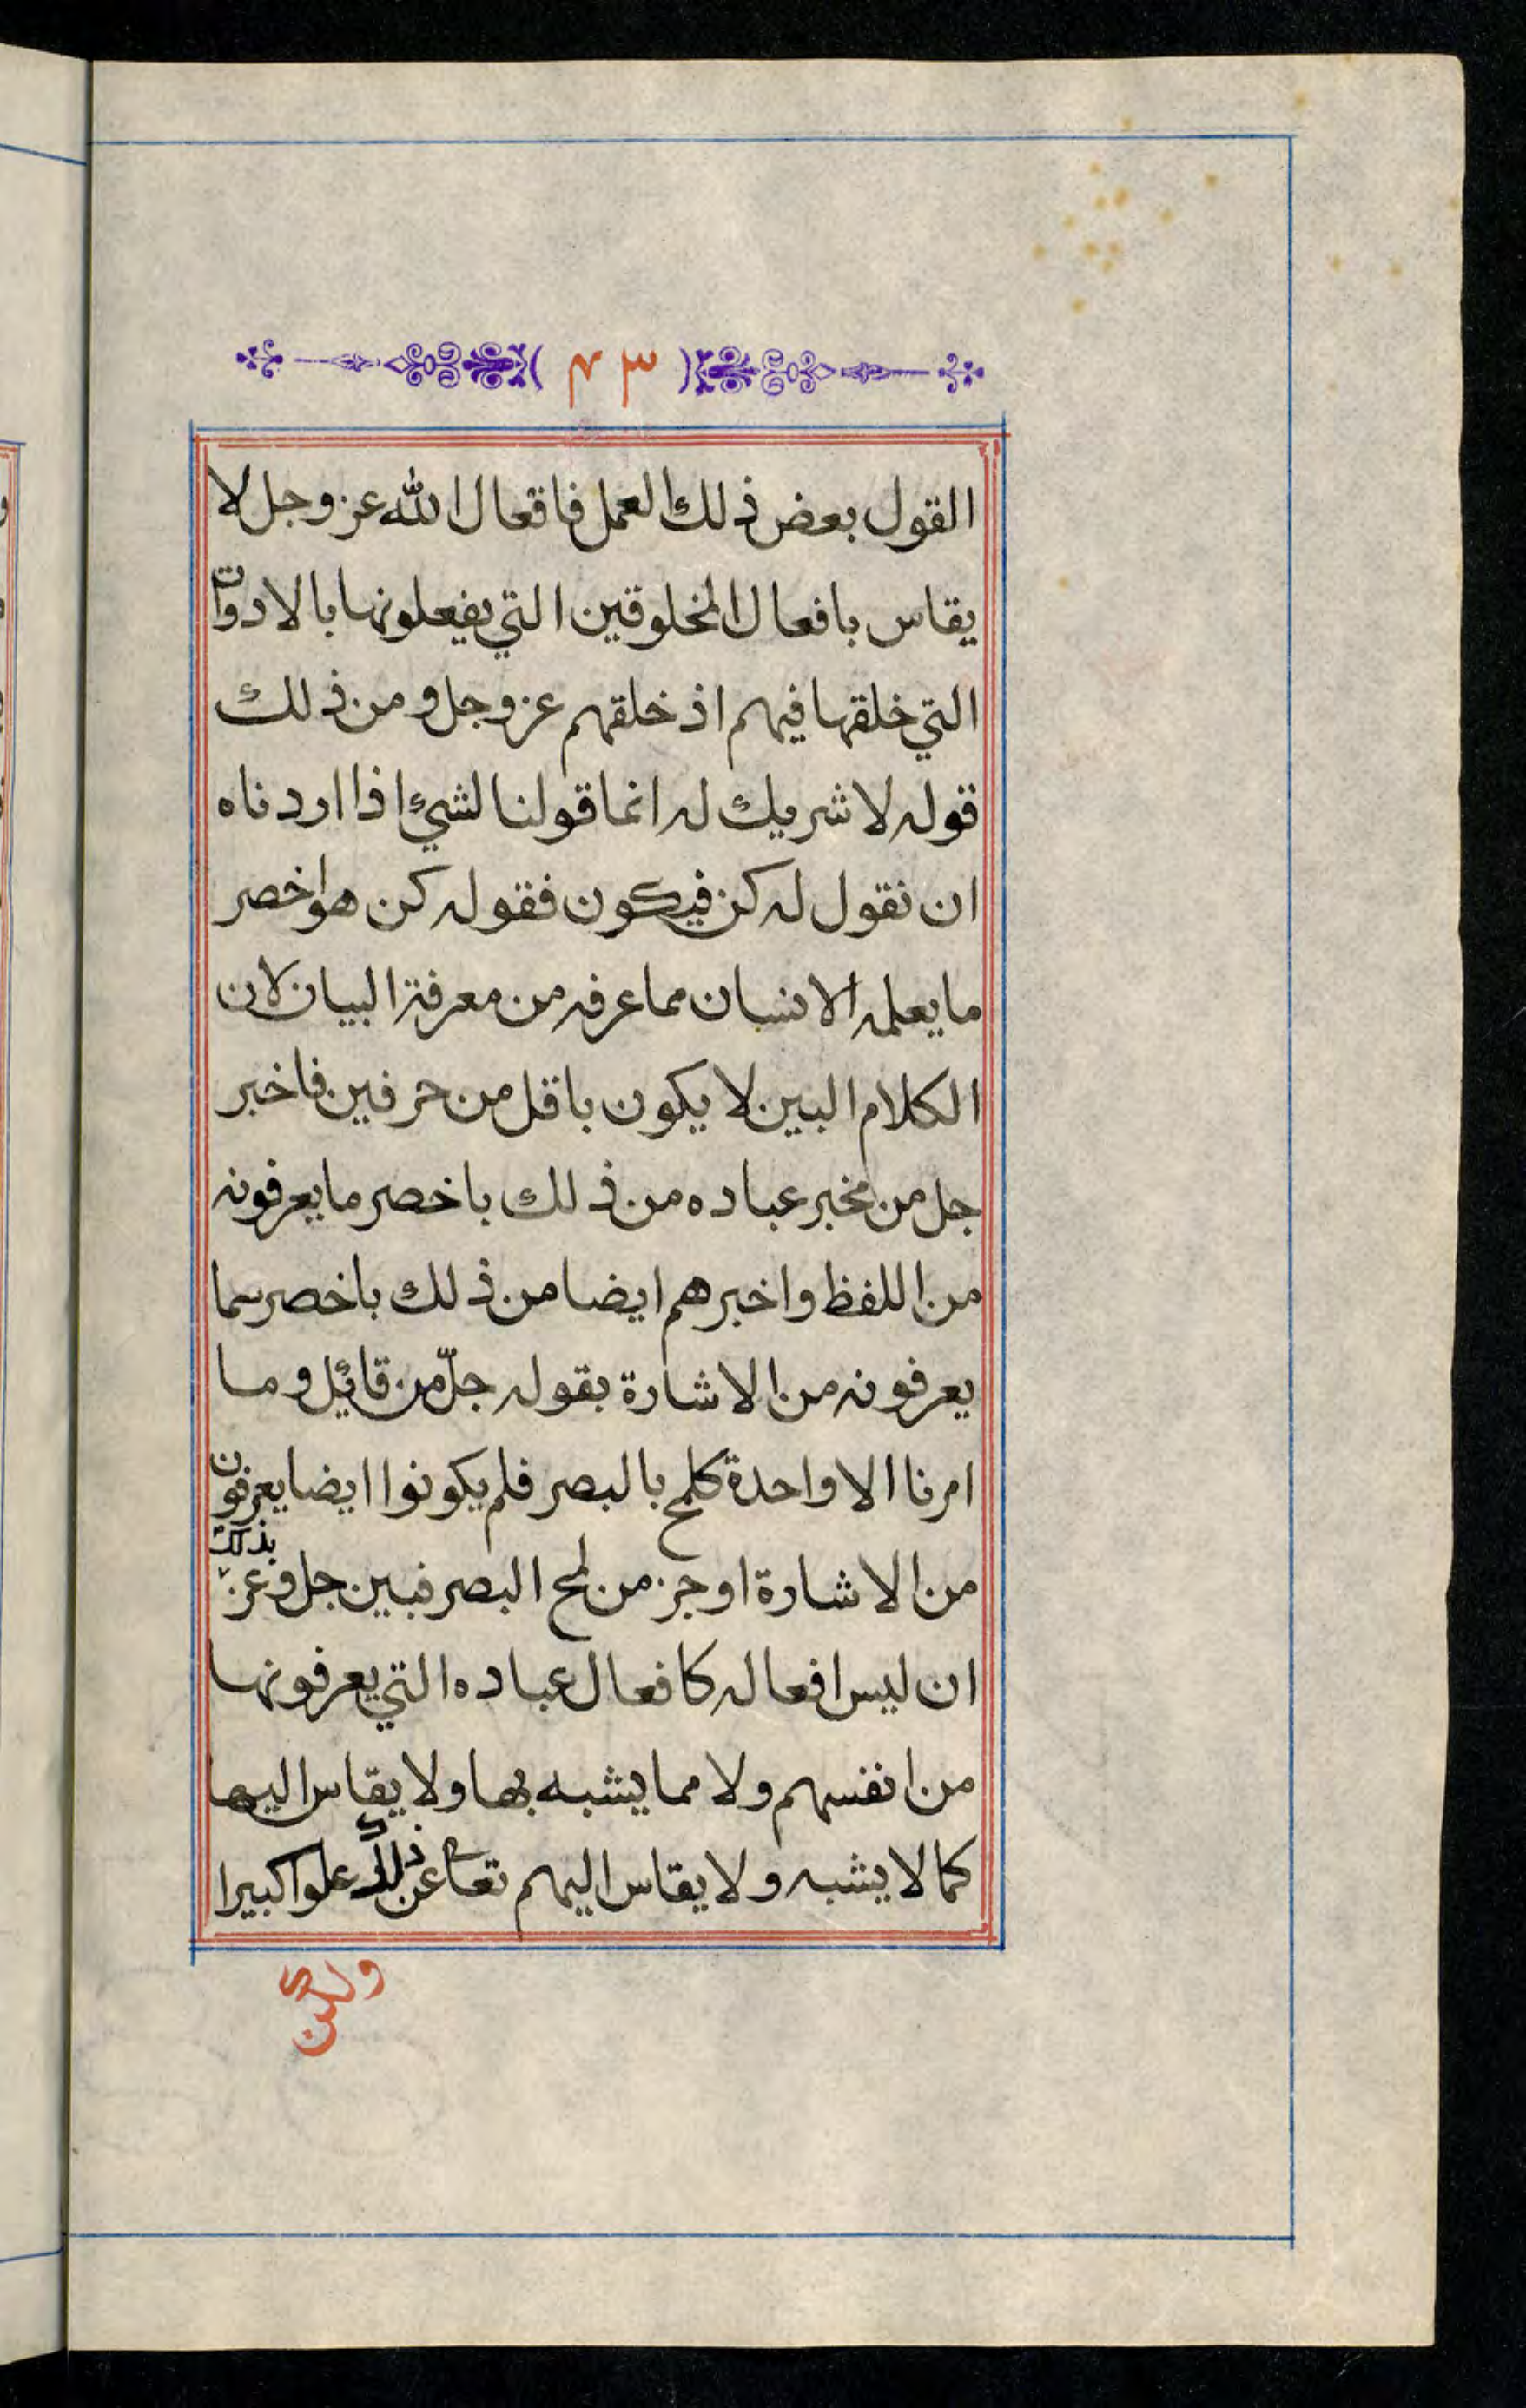 ٣٣
القول بعض ذلك العمل فافعال الله عز وجل لا
يقاس بافعال المخلوقين التي يفعلونها بالادوات
التي خلقها فيهم اذ خلقهم عز وجل ومن ذلك
قوله لا شريك له انما قولنا لشيء اذا اردناه
ان نقول له كن فيكون فقوله كن هو اخصر
ما يعلمه الانسان مما عرفه من معرفة البيان لان
الكلام البين لا يكون باقل من حرفين فاخبر
جل من مخبر عباده من ذلك باخصر ما يعرفونه
من اللفظ واخبرهم ايضا من ذلك باخصر مما
يعرفونه من الاشارة بقوله جلّ من قائل وما
امرنا الا واحدة كلمح بالبصر فلم يكونوا ايضا يعرفون
من الاشارة اوجز من لمح البصر فبين جل وعز بذلك
ان ليس افعاله كافعال عباده التي يعرفونها
من انفسهم ولا مما يشبه بها ولا يقاس اليها
كما لا يشبه ولا يقاس اليهم تعالى عن ذلك علوا كبيرا
ولكن